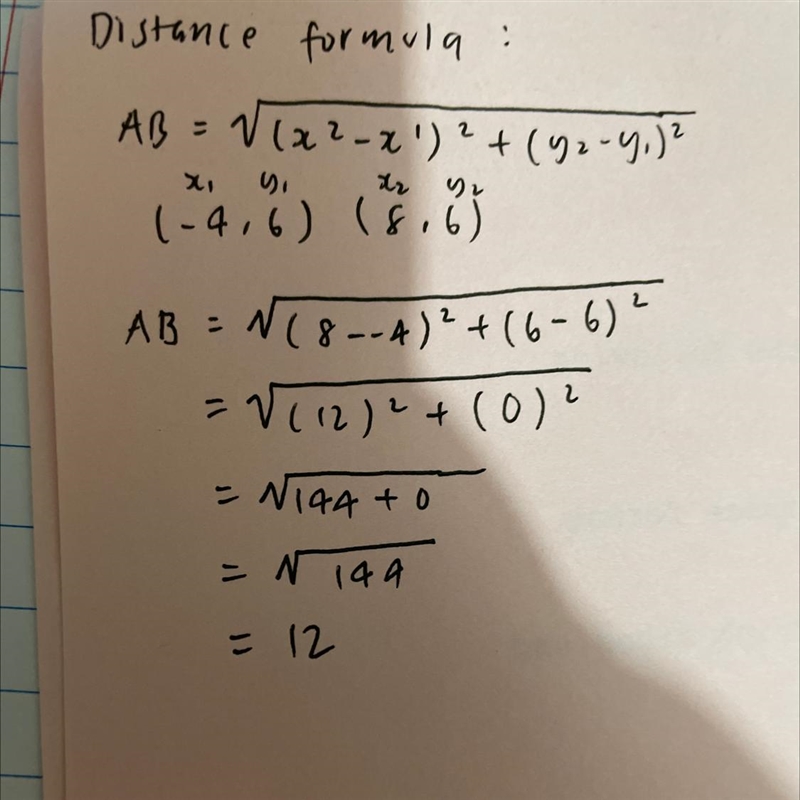 Distance formula :
AB = √(x² - x¹)² + (y₂ - y₁)²
x₁ y₁ x₂ y₂
(-4, 6) (8, 6)
AB = √(8 - -4)² + (6 - 6)²
= √(12)² + (0)²
= √144 + 0
= √144
= 12